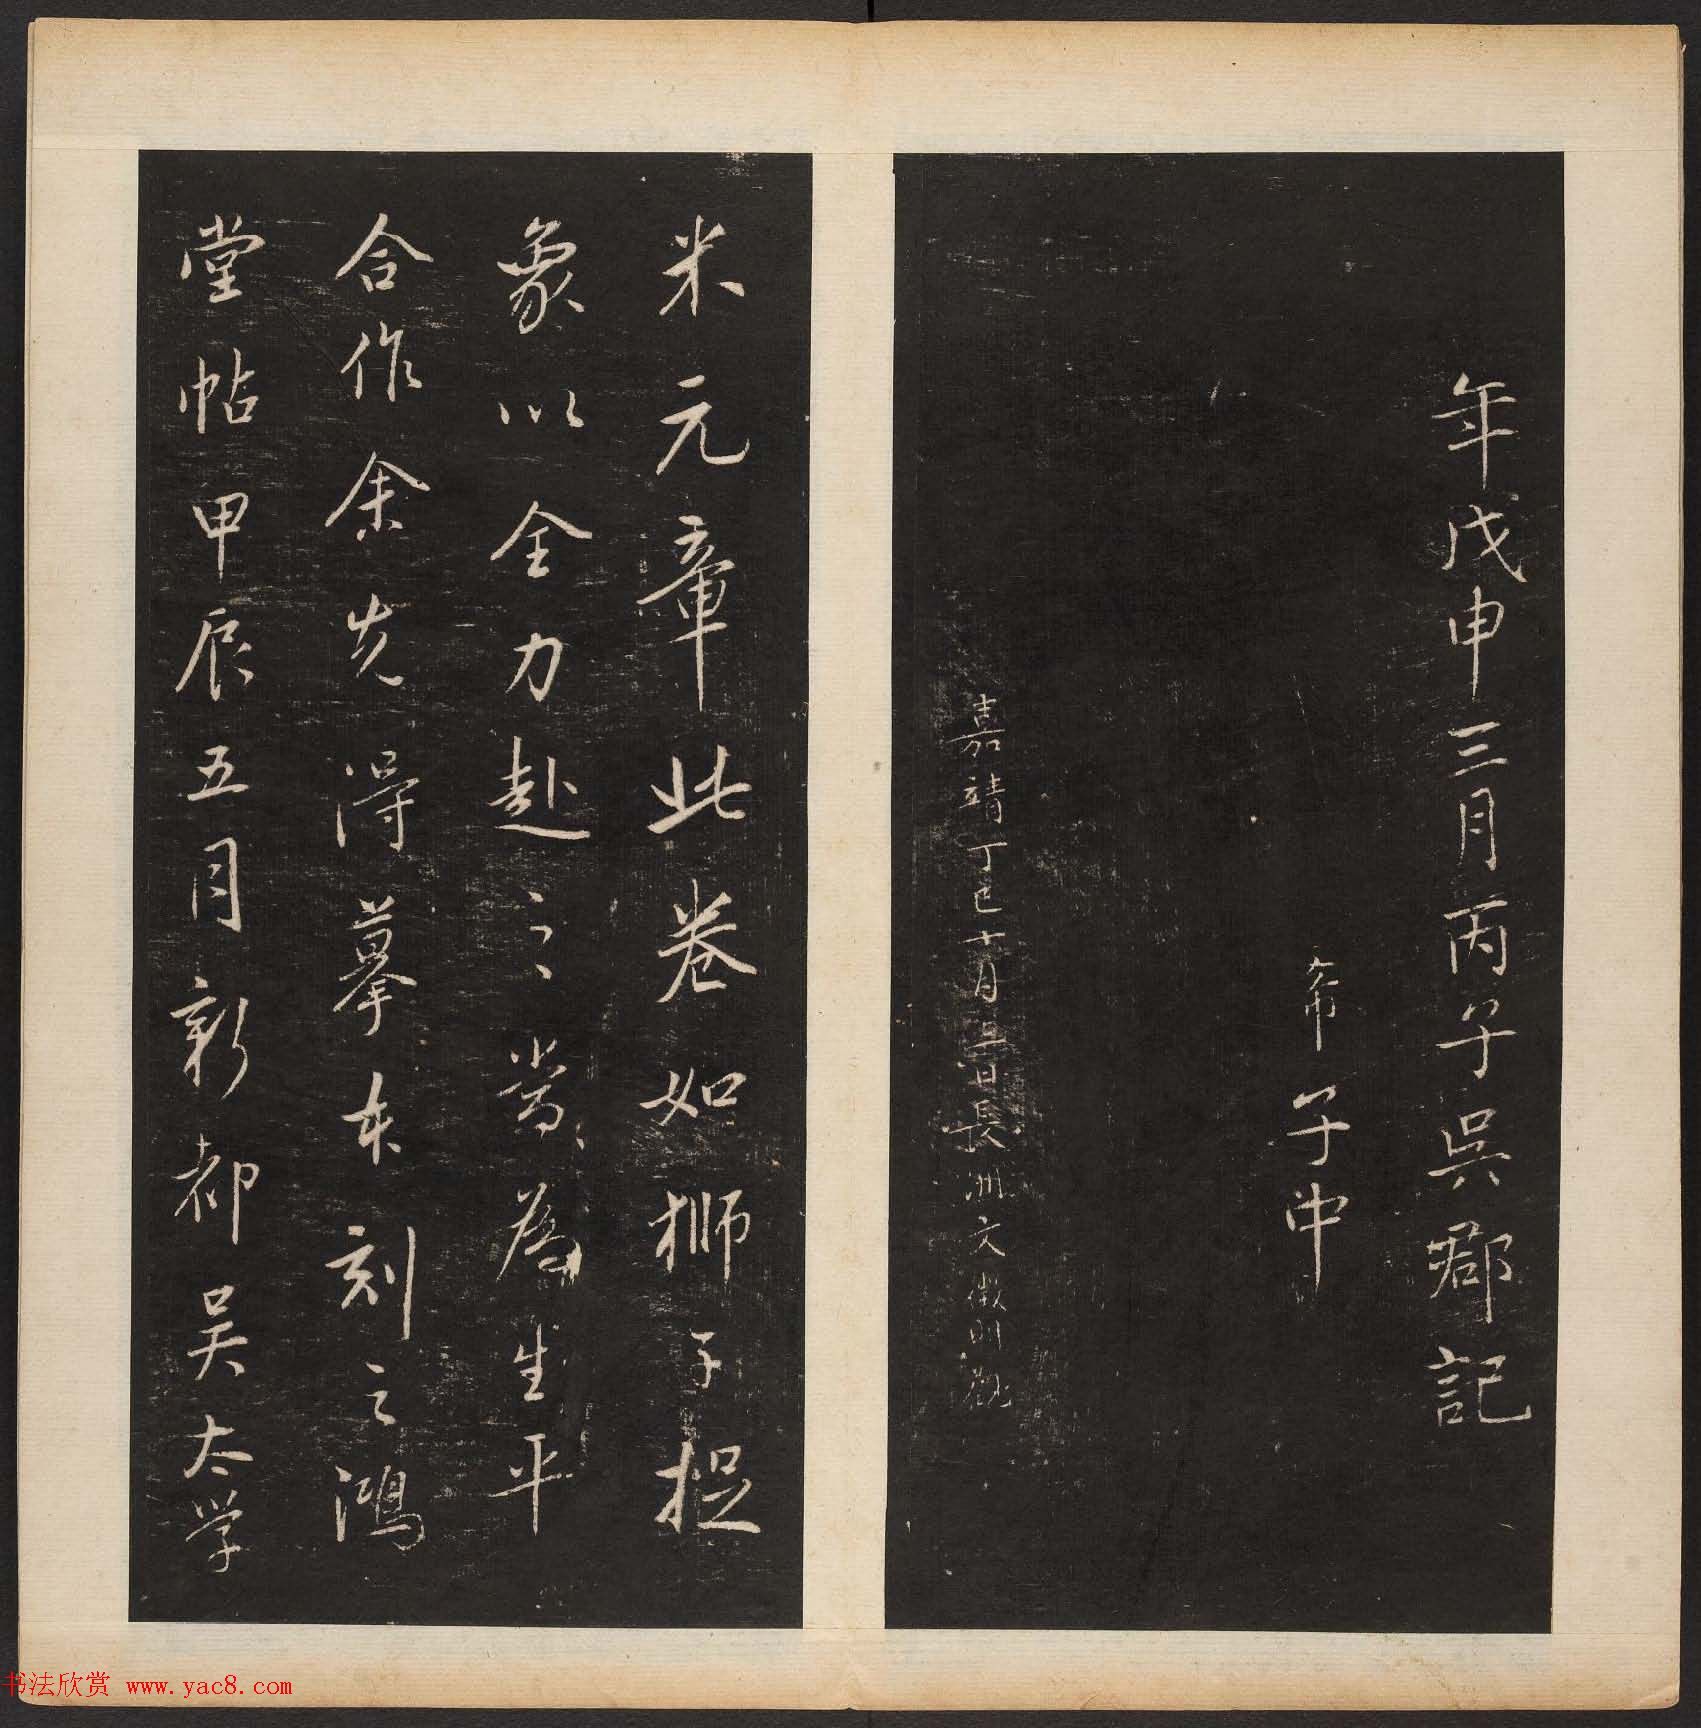 年戊申三月丙子吳郡記
希子中
嘉靖丁巳十月二日長洲文徵明觀
米元章此卷如獅子捉
象以全力赴之當為生平
合作余先得摹本刻之鴻
堂帖甲辰五月新都吳太學
书法欣赏 www.yac8.com